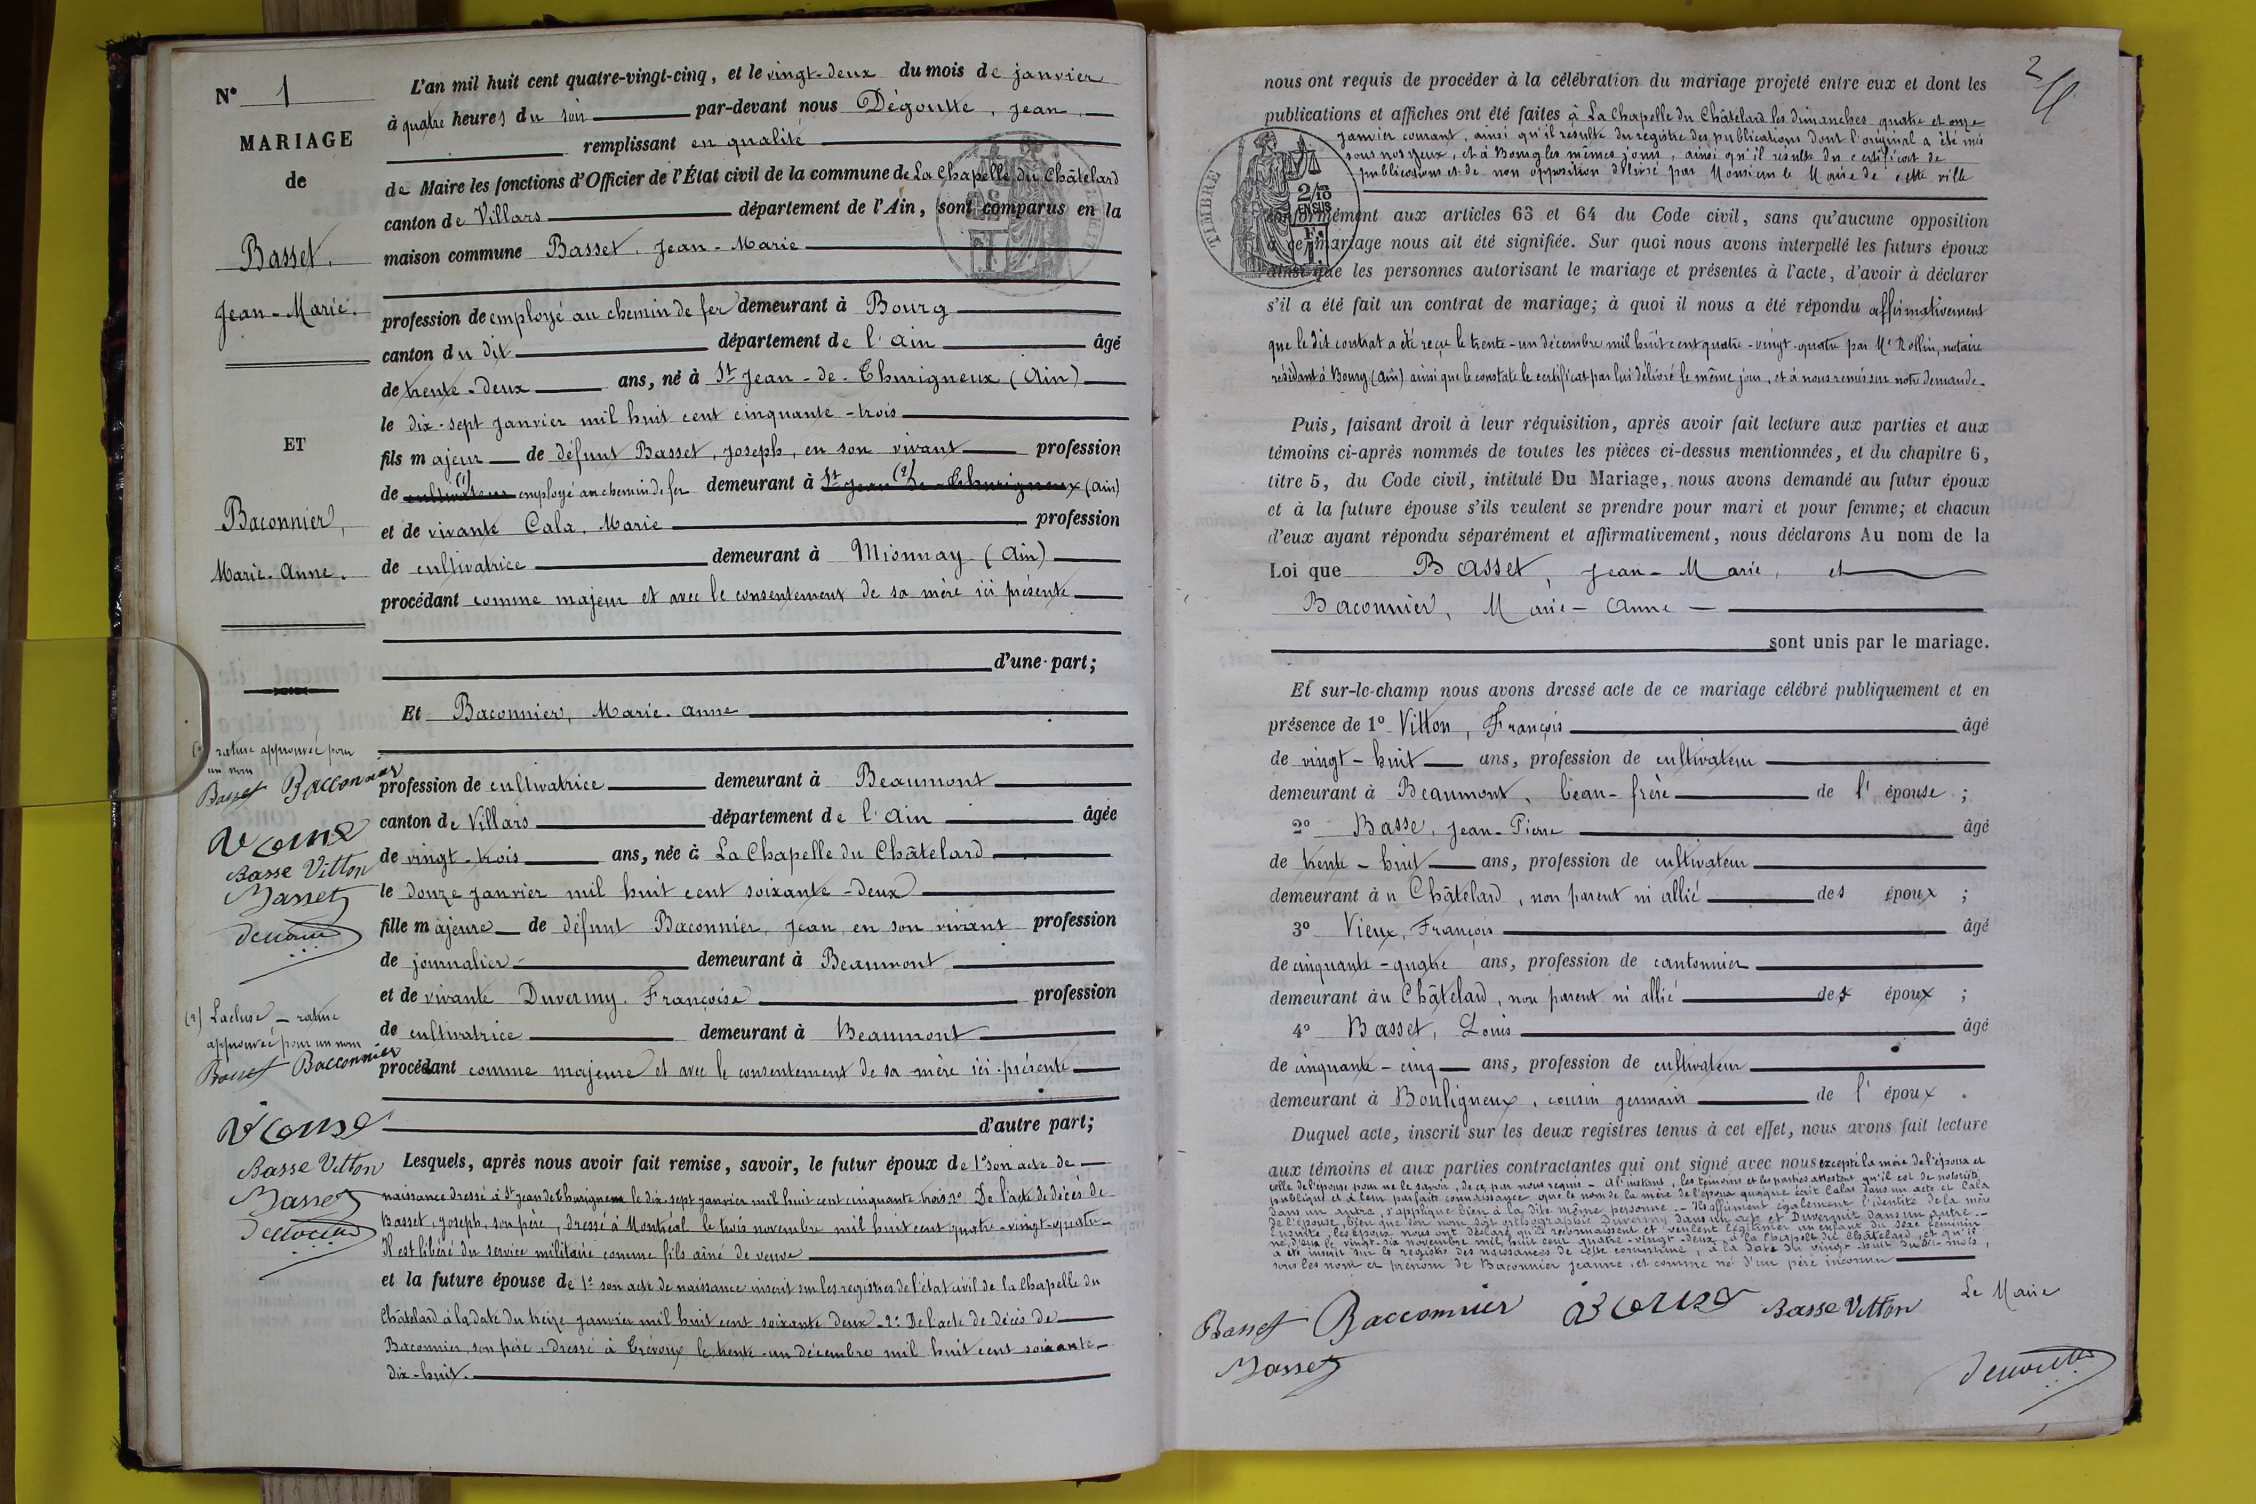 N° 1
MARIAGE
de
Basset.
Jean-Marie.
ET
Baconnier,
Marie-Anne.
rature approuvée pour
un nom
Basset Bacconnier
Basse Vitton
Basset
(2) Lacluse – rature
approuvée pour un nom
Basset Bacconnier
Basse Vitton
Basset
L'an mil huit cent quatre-vingt-cinq, et le vingt-deux du mois de janvier
à quatre heures du soir par-devant nous Dégoutte, Jean,
remplissant en qualité
de Maire les fonctions d'Officier de l'État civil de la commune de La Chapelle du Châtelard
canton de Villars département de l'Ain, sont comparus en la
maison commune Basset, Jean-Marie
profession de employé au chemin de fer demeurant à Bourg
canton du dit département de l'Ain âgé
de trente-deux ans, né à St Jean-de-Thurigneux (Ain)
le dix-sept janvier mil huit cent cinquante-trois
fils majeur de défunt Basset, Joseph, en son vivant profession
de cultivateur (1) employé au chemin de fer demeurant à St Jean de Thurigneux (2) (Ain)
et de vivante Cala, Marie profession
de cultivatrice demeurant à Mionnay (Ain)
procédant comme majeur et avec le consentement de sa mère ici présente
d'une part;
Et Baconnier, Marie-Anne
profession de cultivatrice demeurant à Beaumont
canton de Villars département de l'Ain âgée
de vingt-trois ans, née à La Chapelle du Châtelard
le douze janvier mil huit cent soixante-deux
fille majeure de défunt Baconnier, Jean, en son vivant profession
de journalier demeurant à Beaumont
et de vivante Duvermy, Françoise profession
de cultivatrice demeurant à Beaumont
procédant comme majeure et avec le consentement de sa mère ici présente
d'autre part;
Lesquels, après nous avoir fait remise, savoir, le futur époux de 1° son acte de
naissance dressé à St Jean de Thurigneux le dix-sept janvier mil huit cent cinquante trois 2° De l'acte de décès de
Basset, Joseph, son père, dressé à Montréal le trois novembre mil huit cent quatre-vingt-quatre
Il est libéré du service militaire comme fils aîné de veuve
et la future épouse de 1° son acte de naissance inscrit sur les registres de l'état civil de la Chapelle du
Châtelard à la date du treize janvier mil huit cent soixante deux - 2° De l'acte de décès de
Baconnier, son père, dressé à Trévoux le trente-un décembre mil huit cent soixante-
dix-huit.
2
nous ont requis de procéder à la célébration du mariage projeté entre eux et dont les
publications et affiches ont été faites à La Chapelle du Châtelard les dimanches quatre et onze
janvier courant, ainsi qu'il résulte du registre des publications dont l'original a été mis
sous nos yeux, et à Bourg les mêmes jours, ainsi qu'il résulte du certificat de
publications et de non opposition délivré par Monsieur le Maire de cette ville
TIMBRE
2/10
EN SUS
conformément aux articles 63 et 64 du Code civil, sans qu'aucune opposition
à ce mariage nous ait été signifiée. Sur quoi nous avons interpellé les futurs époux
ainsi que les personnes autorisant le mariage et présentes à l'acte, d'avoir à déclarer
s'il a été fait un contrat de mariage; à quoi il nous a été répondu affirmativement
que le dit contrat a été reçu le trente-un décembre mil huit cent quatre-vingt-quatre par Me Rollin, notaire
résidant à Bourg (Ain) ainsi que le constate le certificat par lui délivré le même jour, et à nous remis sur notre demande.
Puis, faisant droit à leur réquisition, après avoir fait lecture aux parties et aux
témoins ci-après nommés de toutes les pièces ci-dessus mentionnées, et du chapitre 6,
titre 5, du Code civil, intitulé Du Mariage, nous avons demandé au futur époux
et à la future épouse s'ils veulent se prendre pour mari et pour femme; et chacun
d'eux ayant répondu séparément et affirmativement, nous déclarons Au nom de la
Loi que Basset, Jean-Marie, et
Baconnier, Marie-Anne
sont unis par le mariage.
Et sur-le-champ nous avons dressé acte de ce mariage célébré publiquement et en
présence de 1° Vitton, François âgé
de vingt-huit ans, profession de cultivateur
demeurant à Beaumont, beau-frère de l'épouse;
2° Basse, Jean-Pierre âgé
de trente-huit ans, profession de cultivateur
demeurant à u Châtelard, non parent ni allié des époux;
3° Vieux, François âgé
de cinquante-quatre ans, profession de cantonnier
demeurant àu Châtelard, non parent ni allié des époux;
4° Basset, Louis âgé
de cinquante-cinq ans, profession de cultivateur
demeurant à Bouligneux, cousin germain de l'époux.
Duquel acte, inscrit sur les deux registres tenus à cet effet, nous avons fait lecture
aux témoins et aux parties contractantes qui ont signé avec nous excepté la mère de l'époux et
celle de l'épouse pour ne le savoir, de ce par nous requis – A l'instant, les témoins et les parties attestent qu'il est de notoriété
publique et à leur parfaite connaissance, que le nom de la mère de l'époux quoique écrit Calas dans un acte et Cala
dans un autre, s'applique bien à la dite même personne – Ils affirment également l'identité de la mère
de l'épouse, bien que son nom soit orthographié Duvermy dans un acte et Duvernit dans un autre –
Ensuite, les époux nous ont déclaré qu'ils reconnaissent et veulent légitimer un enfant du sexe féminin
né d'eux le vingt-six novembre mil huit cent quatre-vingt-deux, à la Chapelle du Châtelard, et qu'il
a été inscrit sur le registre des naissances de cette commune, à la date du vingt-huit du dit mois,
sous les nom et prénom de Baconnier Jeanne, et comme né d'un père inconnu
Le Maire
Basset Bacconnier Basse Vitton
Basset